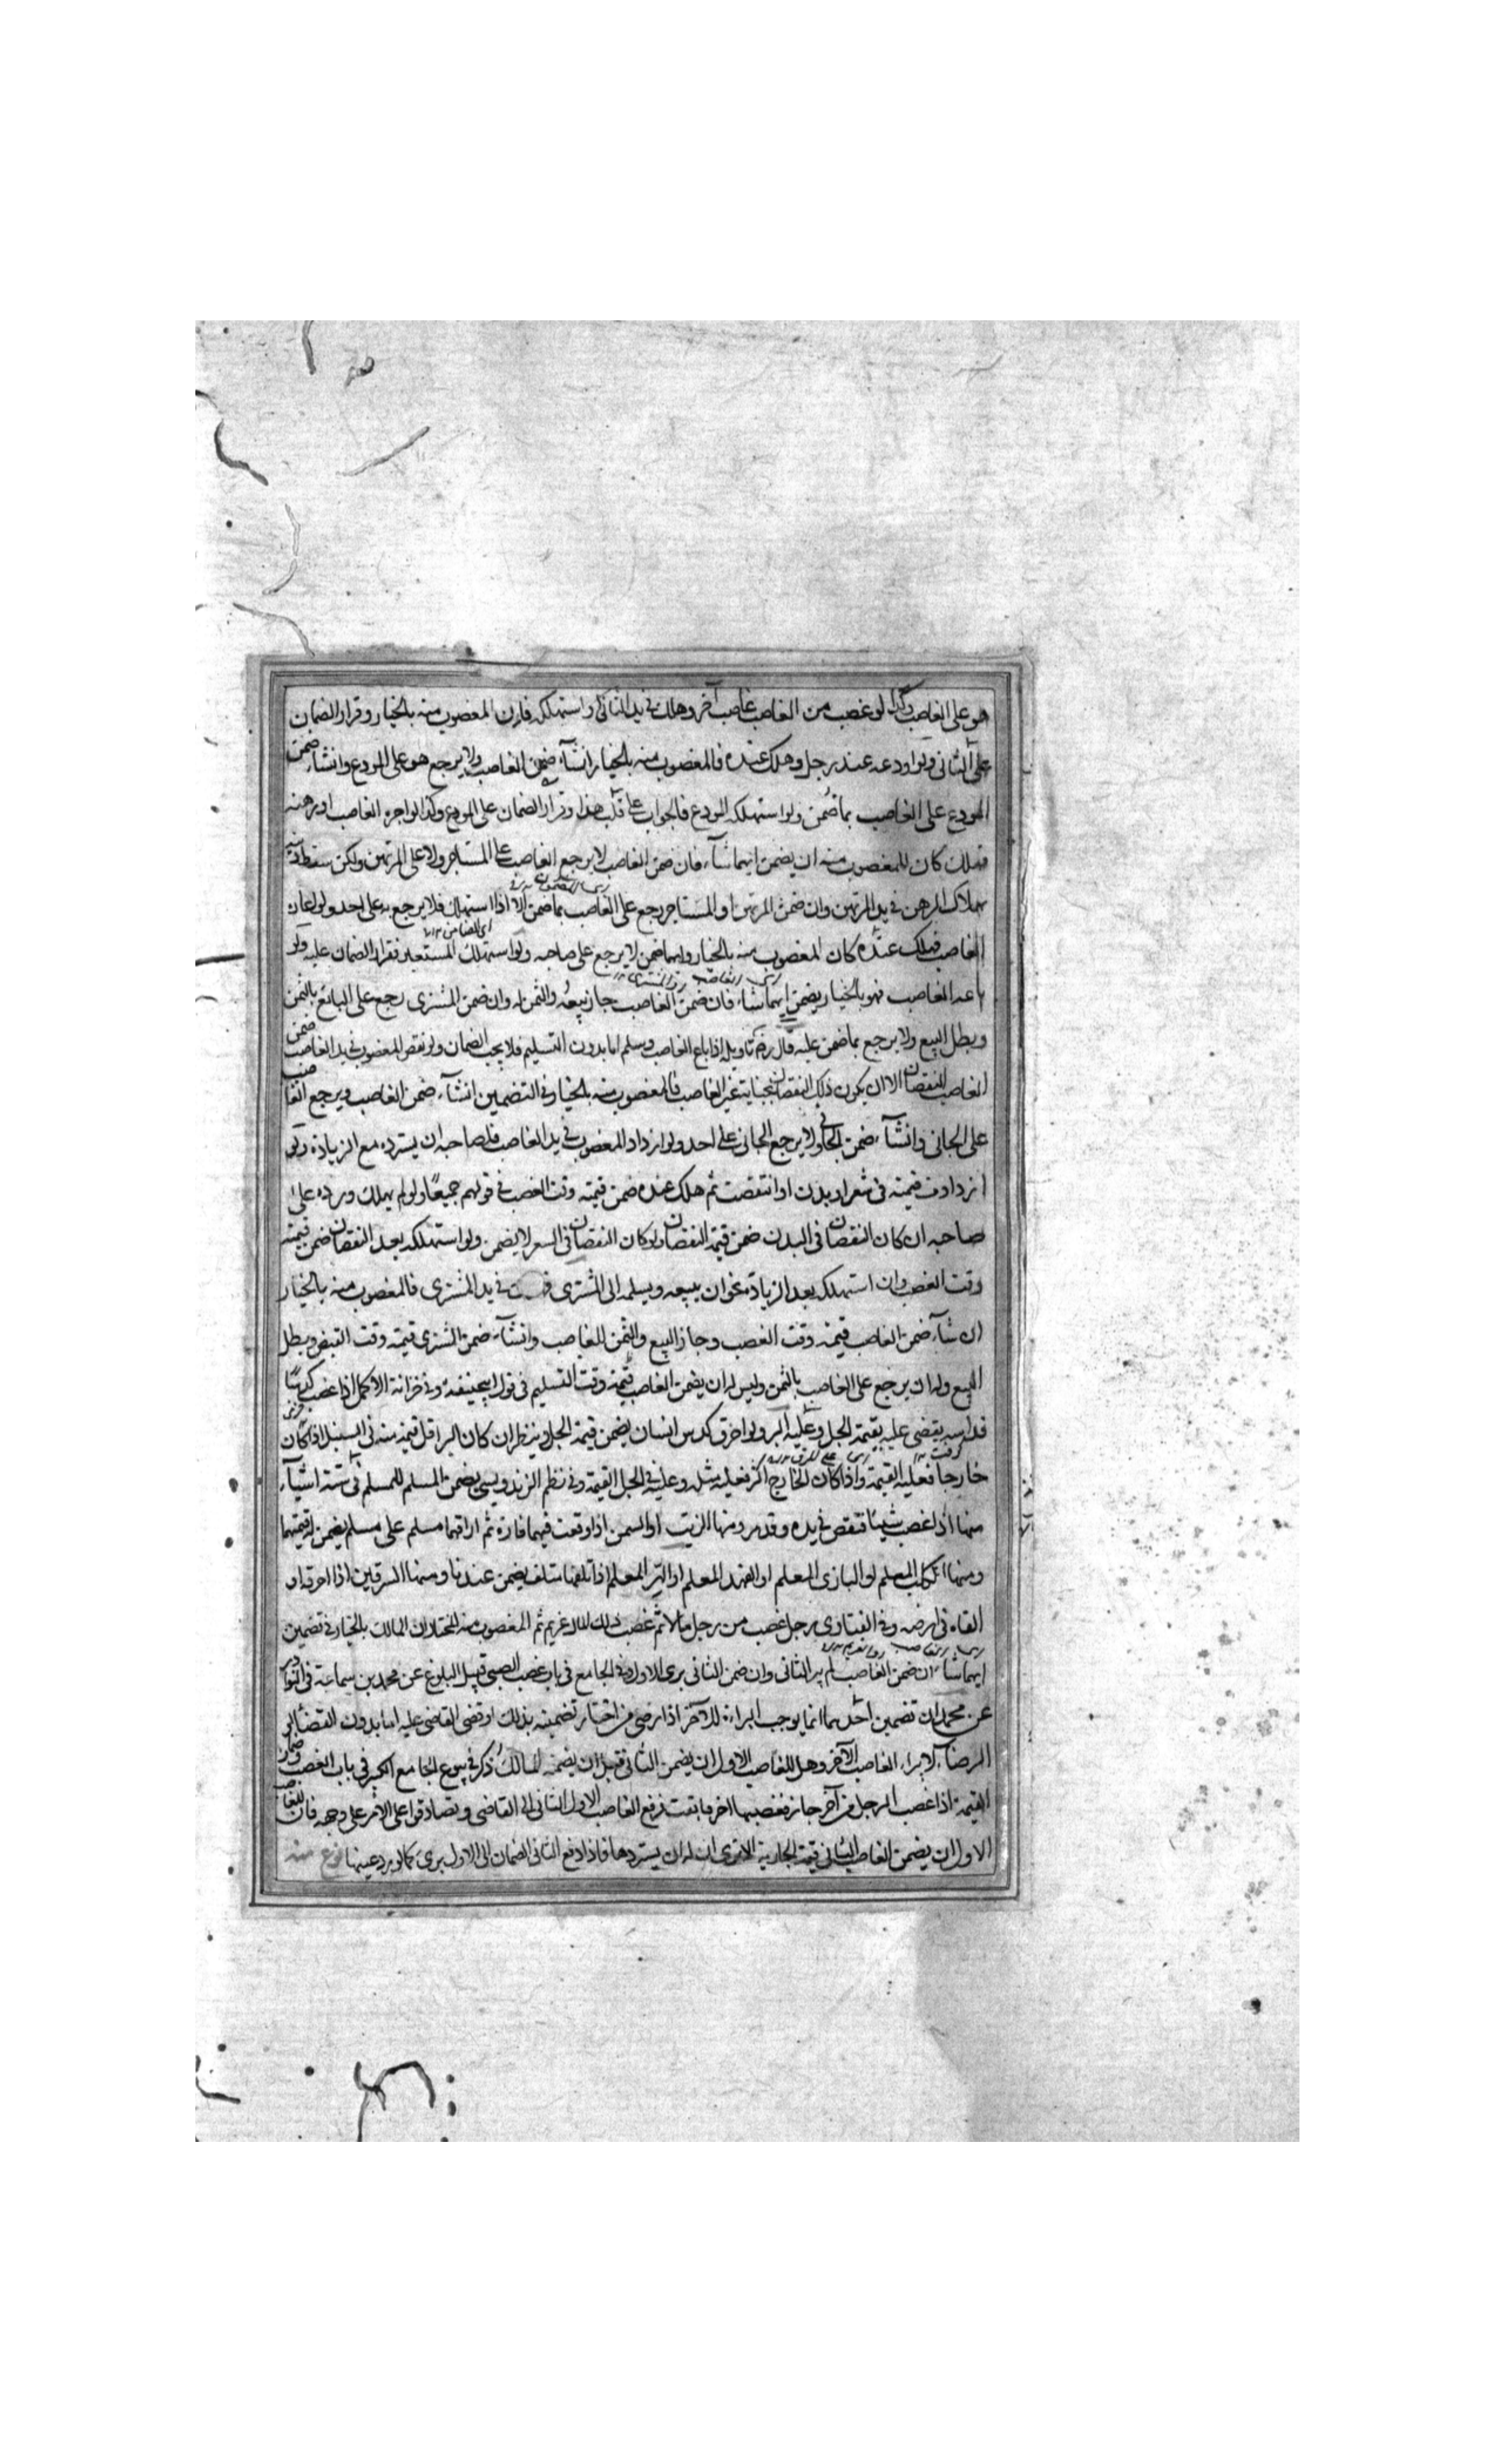 هو على الغاصب وكذا لو غصب من الغاصب غاصب آخر وهلك فى يد الثانى او استهلكه فان المغصوب منه بالخيار وقرار الضمان
على الثانى ولو اودعه عند رجل وهلك عنده فالمغصوب منه بالخيار انشآء ضمن الغاصب ولا يرجع هو على المودع وانشاء ضمن
المودع على الغاصب بما ضمن ولو استهلكه المودع فالجواب على قلب هذا وقرار الضمان على المودع وكذا لو اجره الغاصب او رهنه
فهلك كان للمغصوب منه ان يضمن ايهما شآء فان ضمن الغاصب لا يرجع الغاصب على المستاجر ولا على المرتهن ولكن سقط دينه
بهلاك الرهن فى يد المرتهن وان ضمن المرتهن او المستاجر رجع على الغاصب بما ضمن الا اذا استهلك فلا يرجع به على احد ولو اعار
الغاصب فهلك عنده كان المغصوب منه بالخيار وايهما ضمن لا يرجع على صاحبه ولو استهلك المستعير فقرار الضمان عليه ولو
باعه الغاصب فهو بالخيار يضمن ايهما شاء فان ضمن الغاصب جاز بيعه والثمن له وان ضمن المشترى رجع على البائع بالثمن
وبطل البيع ولا يرجع بما ضمن عليه قال رض تاويله اذا باع الغاصب وسلم اما بدون التسليم فلا يجب الضمان ولو نقص المغصوب فى يد الغاصب ضمن
الغاصب النقصان الا ان يكون ذلك النقصان بجناية غير الغاصب فالمغصوب منه بالخيار فى التضمين انشآء ضمن الغاصب ويرجع الغاصب
على الجانى وانشآء ضمن الجانى ولا يرجع الجانى على احد ولو ازداد المغصوب فى يد الغاصب فلصاحبه ان يسترده مع الزيادة ولو
ازدادت قيمته فى شعر او بدن او انتقصت ثم هلك عنده ضمن قيمته وقت الغصب فى قولهم جميعًا ولو لم يهلك ورده على
صاحبه ان كان النقصان فى البدن ضمن قيمة النقصان ولو كان النقصان فى السعر لا يضمن ولو استهلكه بعد النقصان ضمن قيمته
وقت الغصب وان استهلكه بعد الزيادة نحو ان يبيعه ويسلمه الى المشترى فى يد المشترى فالمغصوب منه بالخيار
ان شآء ضمن الغاصب قيمته وقت الغصب وجاز البيع والثمن للغاصب وانشآء ضمن المشترى قيمته وقت القبض وبطل
البيع وله ان يرجع على الغاصب بالثمن وليس له ان يضمن الغاصب قيمته وقت التسليم فى قول ابيحنيفة وفى خزانة الاكمل اذا غصب كدسًا
يقضى عليه بقيمة الجل وعليه البر ولو احرق كدس انسان يضمن قيمة الجل وينظر ان كان البر اقل قيمته منه فى السنبل اذا كان
خارجا فعليه القيمة واذا كان الخارج اكثر فعليه مثله وعليه فى الجل القيمة وفى نظم الزندويسى يضمن المسلم للمسلم فى ستة اشيآء
منها اذا غصب شيئا فنقص فى يده ومنها الزيت او السمن اذا وقعت فيهما فارة ثم اراقهما مسلم على مسلم يضمن له قيمتهما
ومنها الكلب المعلم او البازى المعلم او الفهد المعلم اذا تلفها متلف يضمن عندنا ومنها السرقين اذا احرقه او
القاه فى ارضه وفى الفتاوى رجل غصب من رجل مالا ثم غصب ذلك المال غريم ثم المغصوب منه المختار ان المالك بالخيار فى تضمين
ايهما شاء ان ضمن الغاصب لم يبر الثانى وان ضمن الثانى برى الاول وفى الجامع فى باب غصب الصبى قبيل البلوغ عن محمد بن سماعة فى النوادر
عن محمد ان تضمين احدهما انما يوجب البراءة للآخر اذا رضى من اختار تضمينه بذلك او قضى القاضى عليه اما بدون القضاء او
الرضاء لا يبراء الغاصب الآخر وهل للغاصب الاول ان يضمن الثانى قبل ان يضمنه المالك ذكر فى بيوع الجامع الكبير فى باب الغصب وضمان
القيمة اذا غصب الرجل من آخر جارية فغصبها آخر فابقت فرفع الغاصب الاول الثانى الى القاضى وتصادقوا على الامر على وجهه فان للغاصب
الاول ان يضمن الغاصب الثانى قيمة الجارية الا ترى ان له ان يستردها فاذا دفع الثانى الضمان الى الاول برى كما لو رد عينها